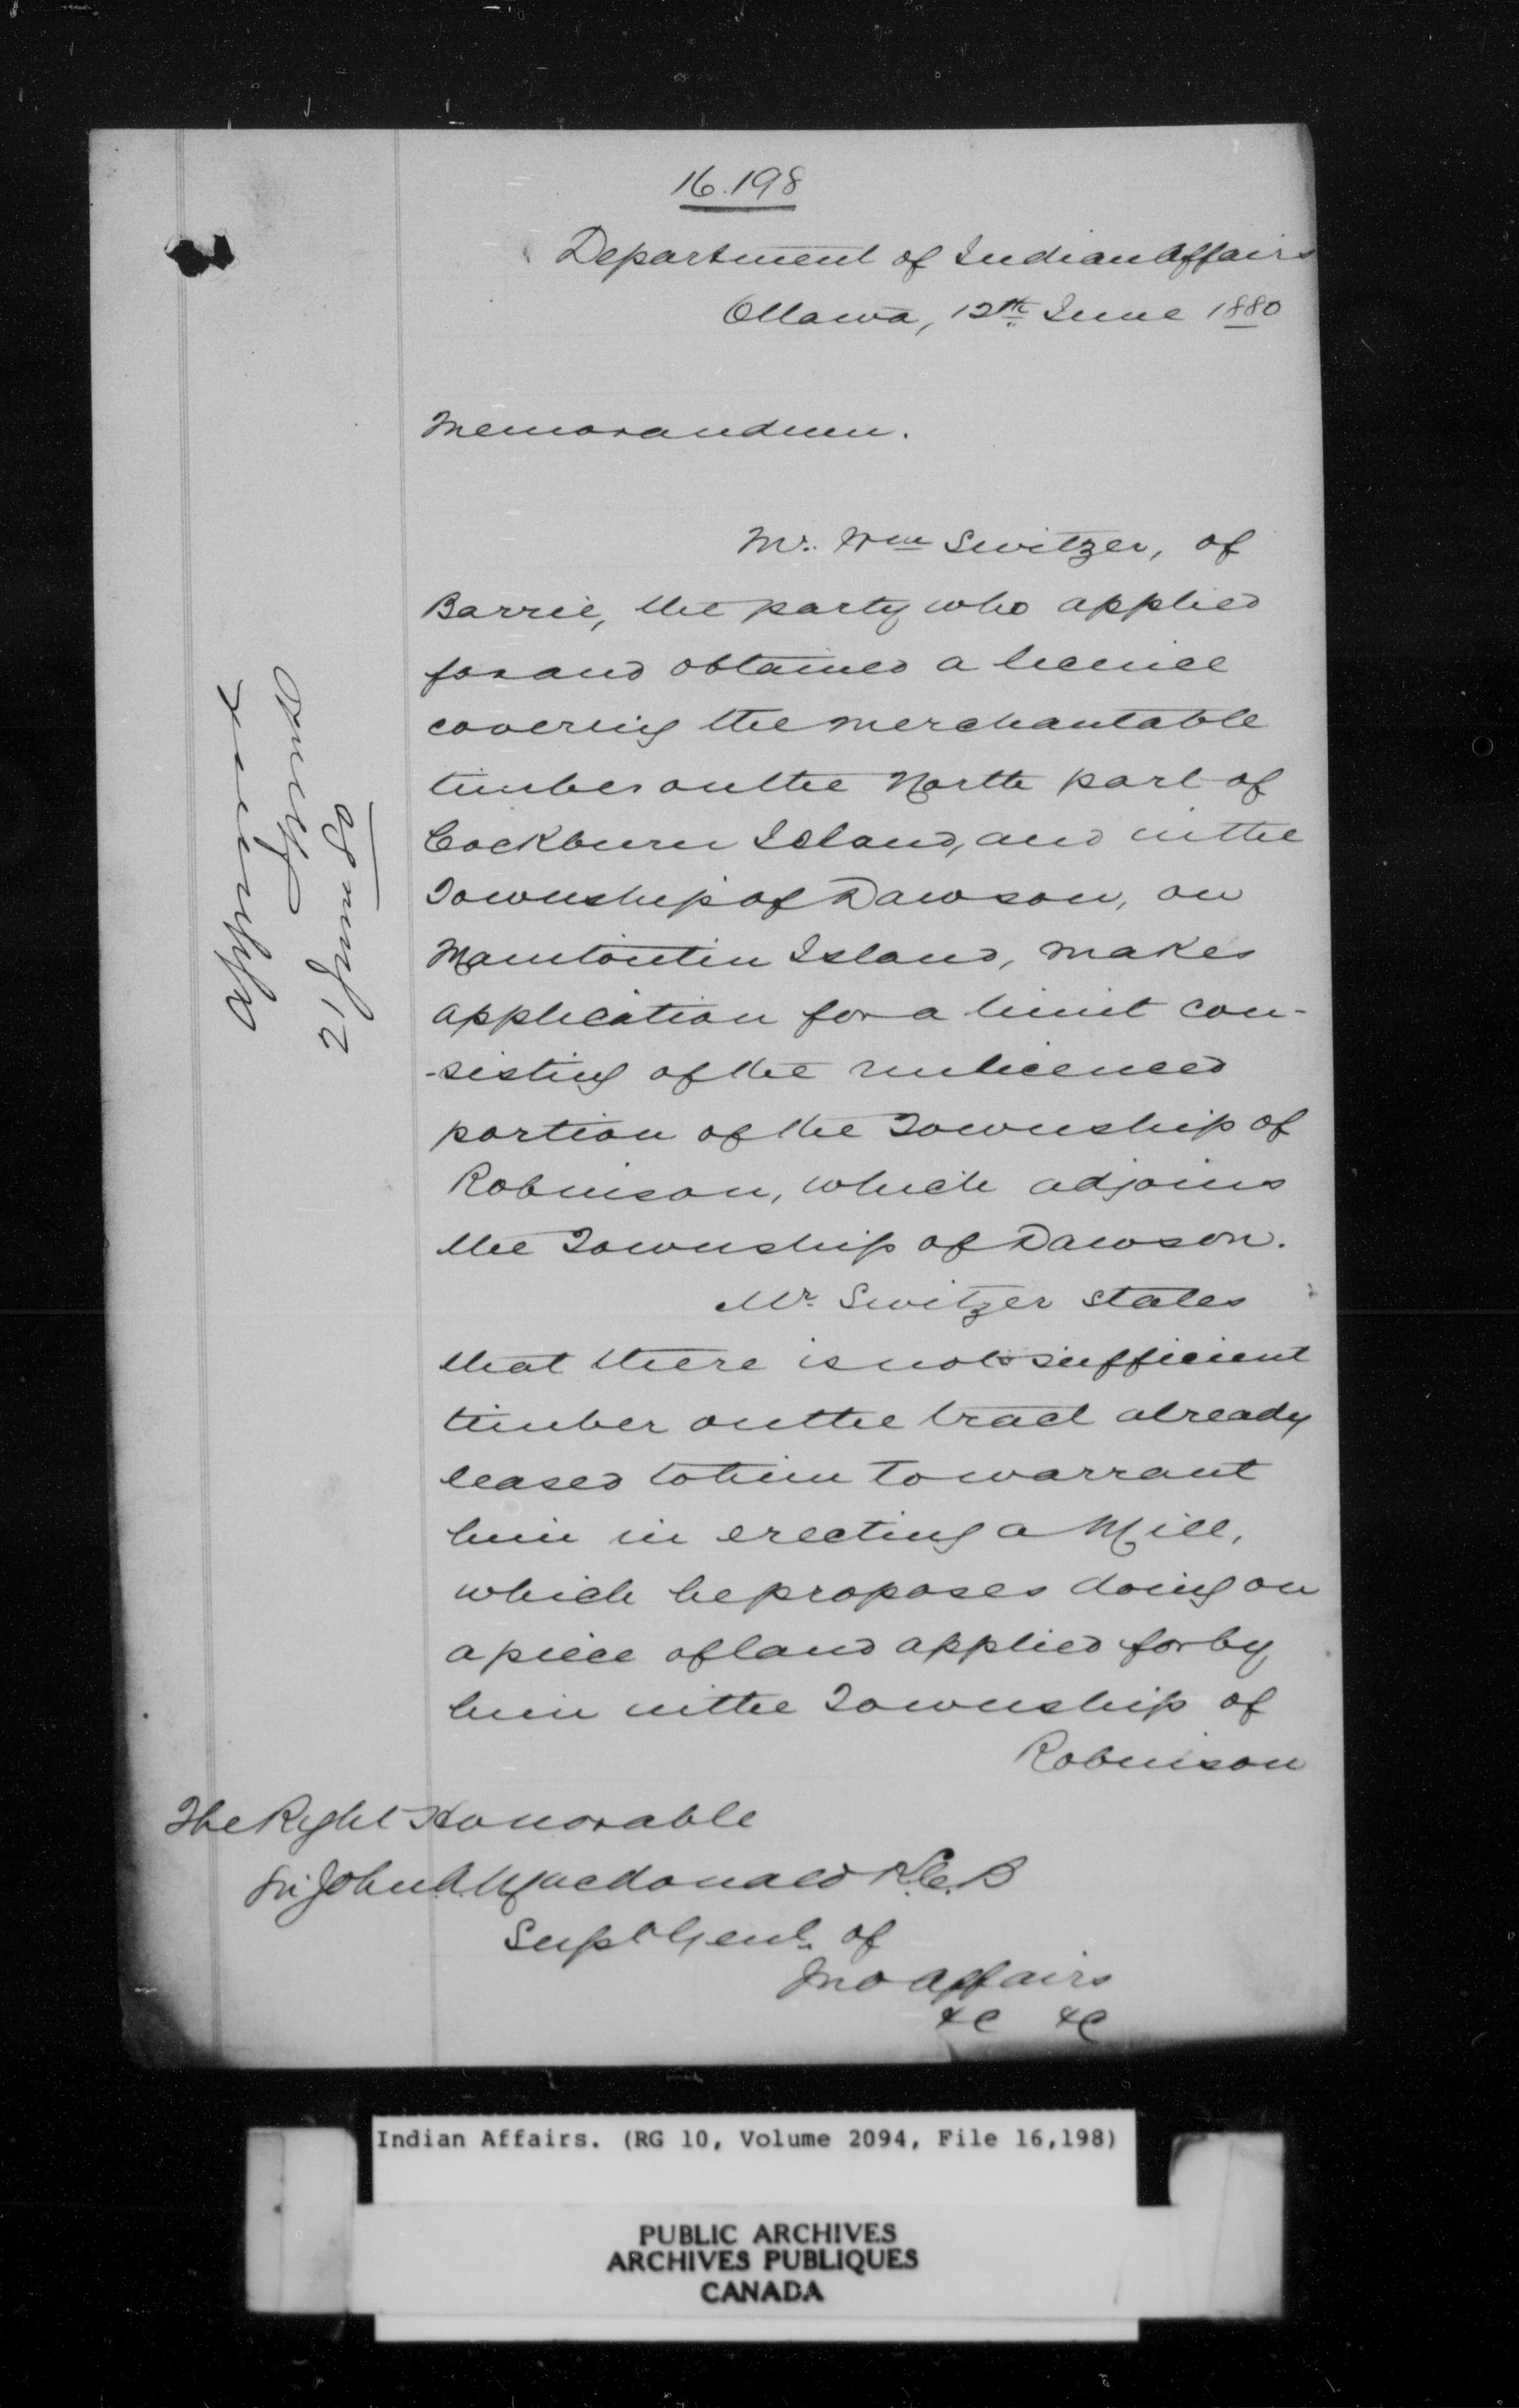 16.198
Department of Indian Affairs
Ottawa, 12th June 1880
Memorandum.
Mr. Wm Switzer, of
Barrie, the party who applied
for and obtained a licence
covering the merchantable
timber on the North part of
Cockburn Island, and in the
Township of Dawson, on
Manitoulin Island, makes
application for a limit con-
-sisting of the unlicenced
portion of the Township of
Robinson, which adjoins
the Township of Dawson.
Mr. Switzer states
that there is not sufficient
timber on the tract already
leased to him to warrant
him in erecting a Mill,
which he proposes doing on
a piece of land applied for by
him in the Township of
Robinson
The Right Honorable
Sir John A. Macdonald K.C.B
Supt Genl. of
Ind Affairs
&c &c
approved
21 June 80
Indian Affairs. (RG 10, Volume 2094, File 16,198)
PUBLIC ARCHIVES
ARCHIVES PUBLIQUES
CANADA